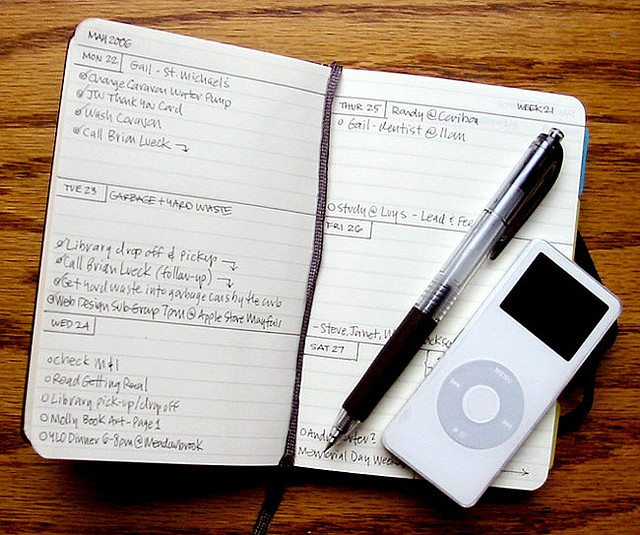 MAY 2006
MON 22 Gail - St. Michael's
Change Caravan Water Pump
JW Thank You Card
Wash Caravan
Call Brian Lueck →
TUE 23 GARBAGE + YARD WASTE
Library drop off & pickup →
Call Brian Lueck (follow-up) →
Get yard waste into garbage cans by the curb
Web Design Sub-Group 7pm @ Apple Store Mayfair
WED 24
check M+I
Read Getting Real
Library pick-up/drop off
Molly Book Art - Page 1
YLO Dinner 6-8pm @ Meadowbrook
WEEK 21
THUR 25 Randy @ Caribou
Gail - dentist @ 11am
Study @ Luy's - Lead &
FRI 26
- Steve, Janet,
SAT 27
Memorial Day
MENU